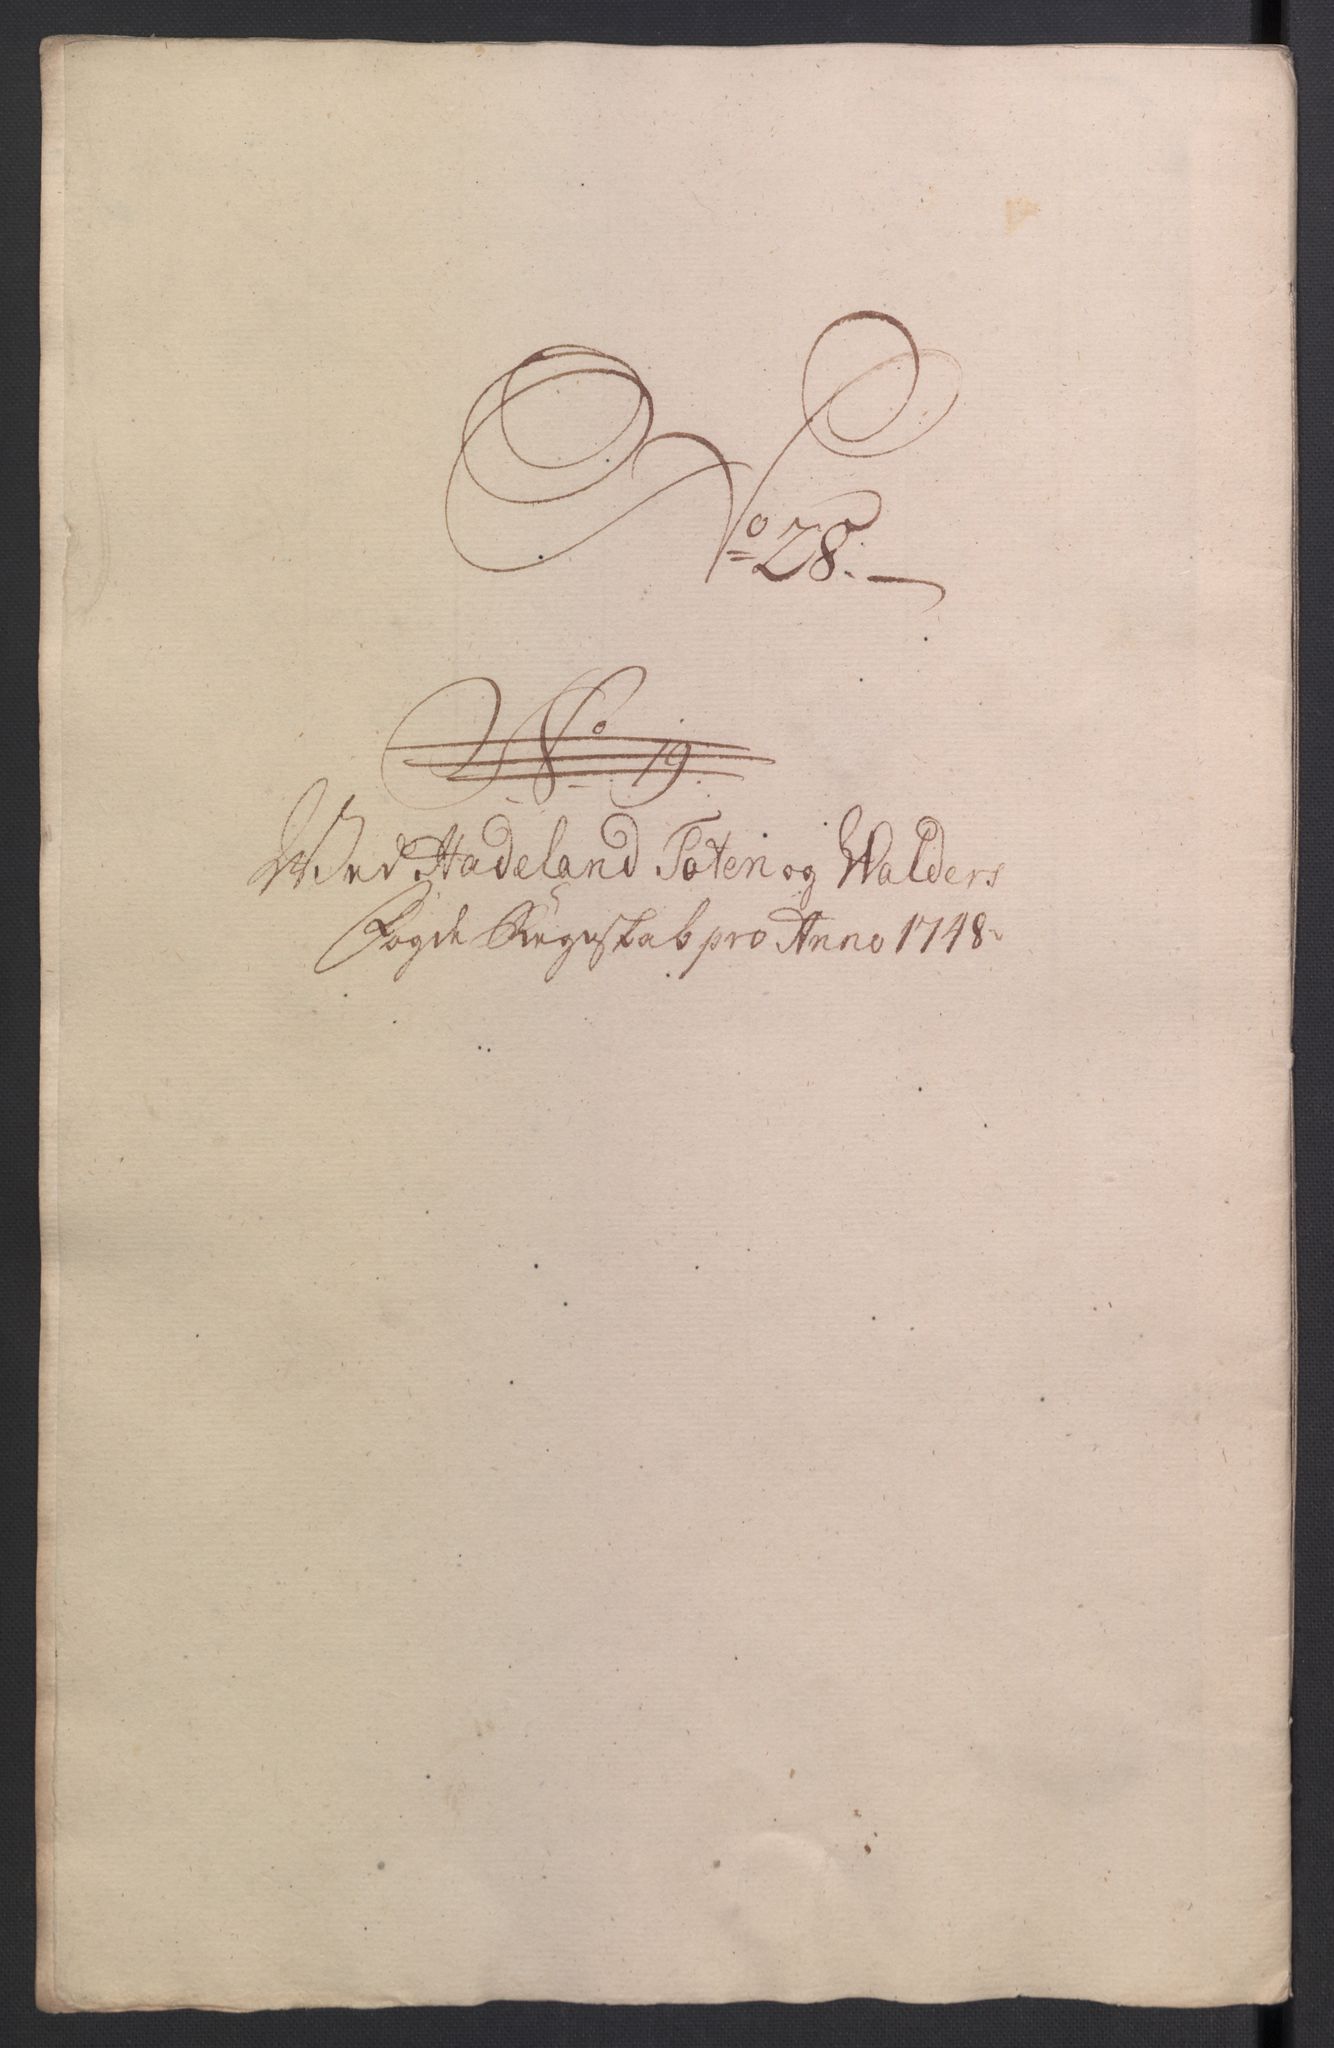 No 28.
No 19.
Wed Hadeland Toten og Walders
Fogde Regnskab pro Anno 1748